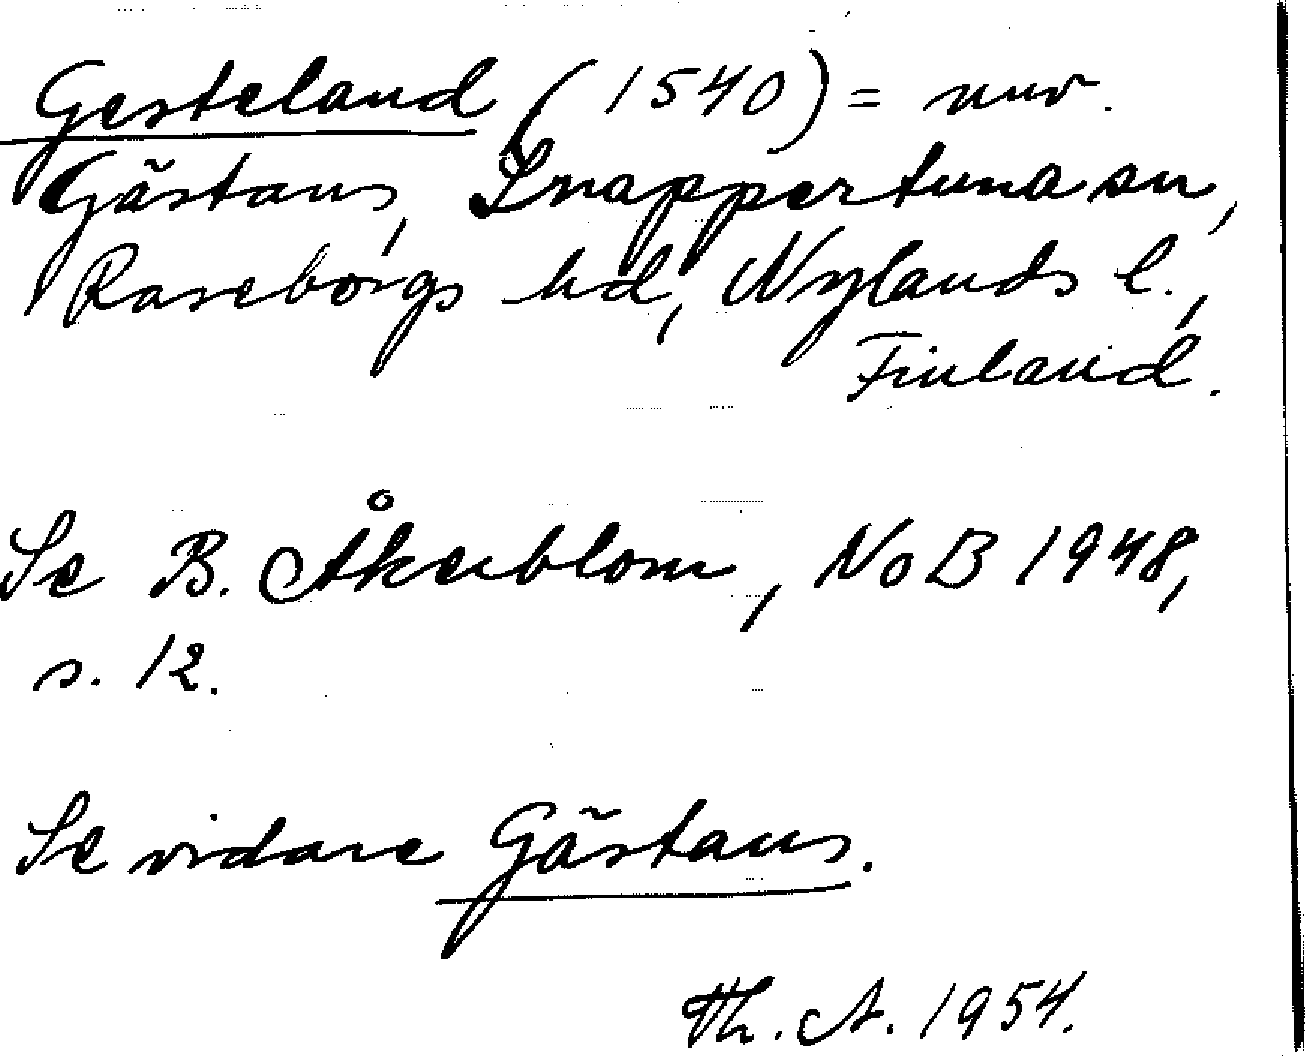 Gesteland (1540) = nuv.
Gästans, Snappertuna sn,
Raseborgs hd, Nylands l.,
Finland.
Se B. Åkerblom, NoB 1948,
s. 12.
Se vidare Gästans.
Th. A. 1954.